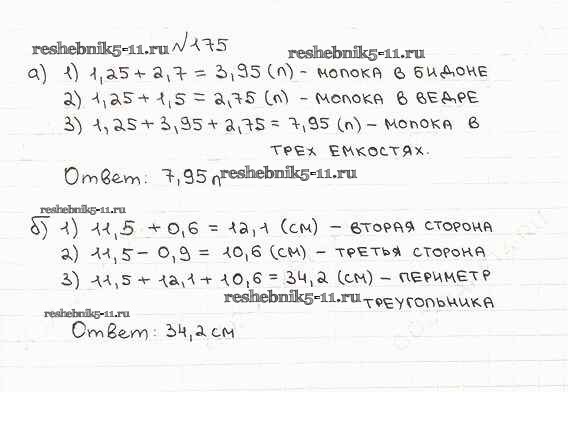 reshebnik5-11.ru №175 reshebnik5-11.ru
а) 1) 1,25 + 2,7 = 3,95 (л) - молока в бидоне
2) 1,25 + 1,5 = 2,75 (л) - молока в ведре
3) 1,25 + 3,95 + 2,75 = 7,95 (л) - молока в
трех емкостях.
Ответ: 7,95 л reshebnik5-11.ru
reshebnik5-11.ru
б) 1) 11,5 + 0,6 = 12,1 (см) - вторая сторона
2) 11,5 - 0,9 = 10,6 (см) - третья сторона
3) 11,5 + 12,1 + 10,6 = 34,2 (см) - периметр
reshebnik5-11.ru треугольника
reshebnik5-11.ru
Ответ: 34,2 см